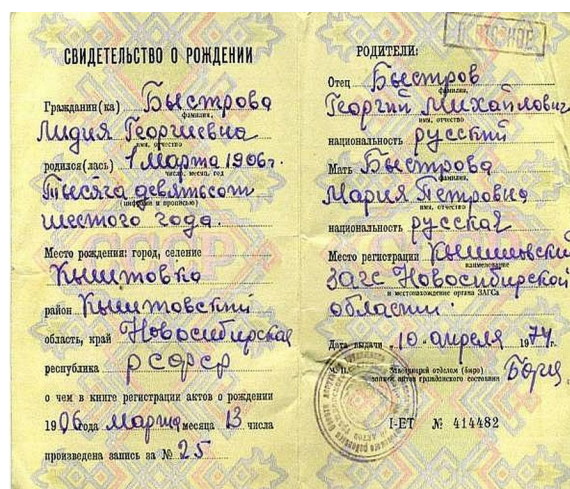 СВИДЕТЕЛЬСТВО О РОЖДЕНИИ
Гражданин(ка) Быстрова
фамилия,
Лидия Георгиевна
имя, отчество
родился(лась) 1 марта 1906 г.
число, месяц, год
Тысяча девятьсот
(цифрами и прописью)
шестого года.
Место рождения: город, селение
Кыштовка
район Кыштовский
область, край Новосибирская
республика РСФСР
о чем в книге регистрации актов о рождении
1906 года марта месяца 13 числа
произведена запись за № 25
РОДИТЕЛИ:
Отец Быстров
фамилия,
Георгий Михайлович
имя, отчество
национальность русский
Мать Быстрова
фамилия,
Мария Петровна
имя, отчество
национальность русская
Место регистрации
наименование
ЗАГС Новосибирской
и местонахождение органа ЗАГСа
области.
Дата выдачи „10" апреля 1974 г.
М. П. Заведующий отделом (бюро)
записи актов гражданского состояния
I-ЕТ № 414482